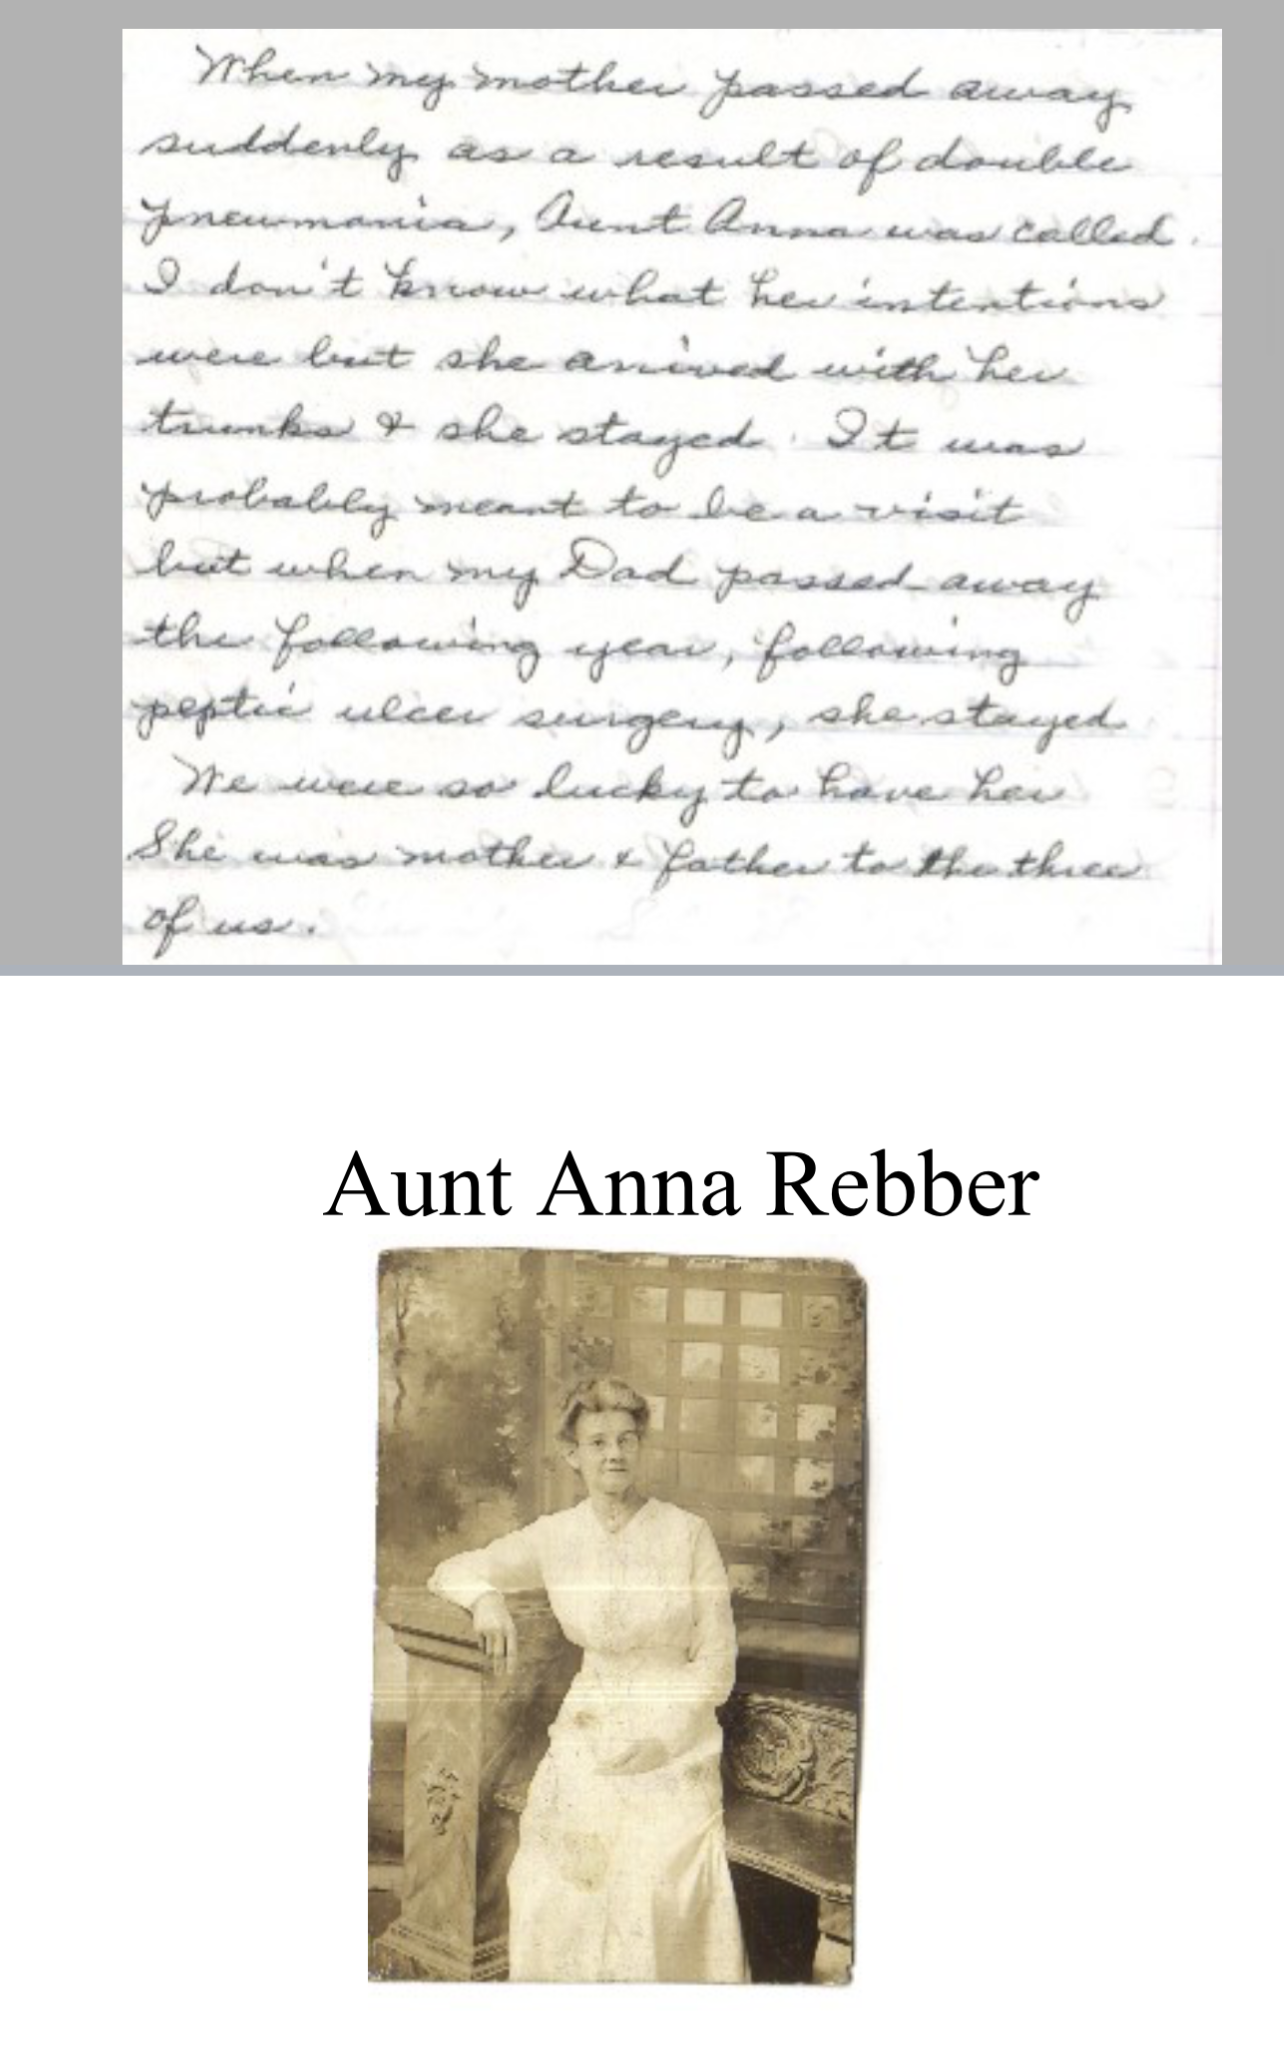 When my mother passed away
suddenly as a result of double
pneumonia, Aunt Anna was called.
I don't know what her intentions
were but she arrived with her
trunks & she stayed. It was
probably meant to be a visit
but when my Dad passed away
the following year, following
peptic ulcer surgery, she stayed
We were so lucky to have her
She was mother & father to the three
of us.
Aunt Anna Rebber